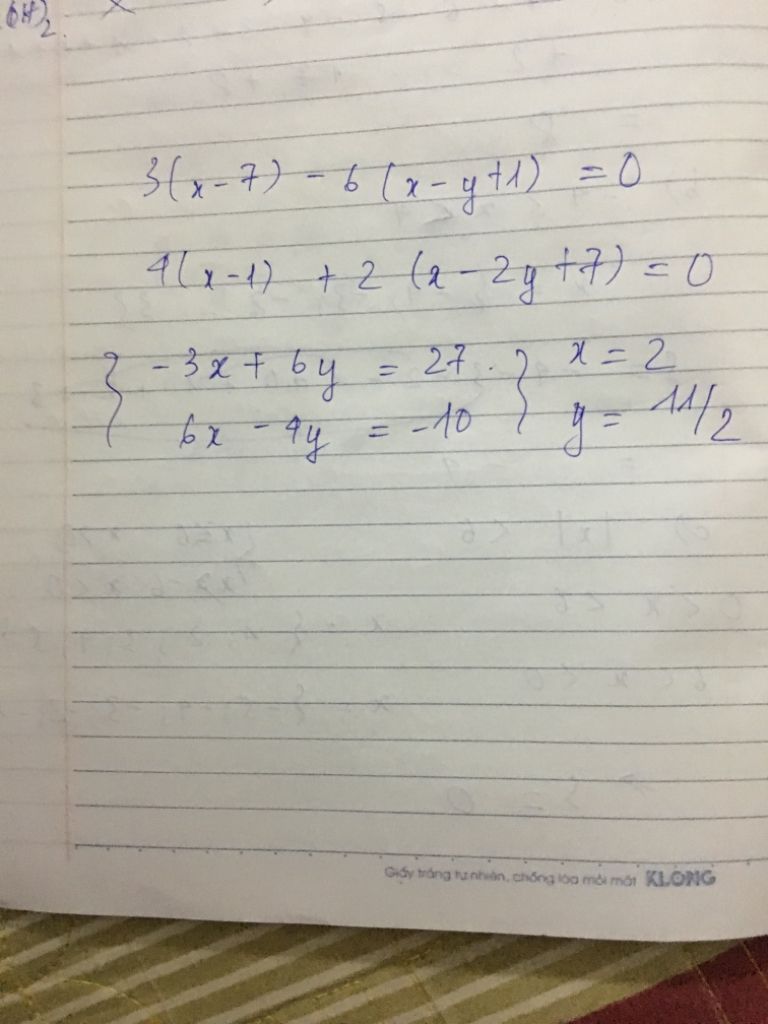 6H)2
3(x-7) - 6(x-y+1) = 0
4(x-1) + 2(x-2y+7) = 0
{ -3x + 6y = 27. } x = 2
6x - 4y = -10 y = 11/2
Giấy trắng tự nhiên, chống lóa mỏi mắt KLONG